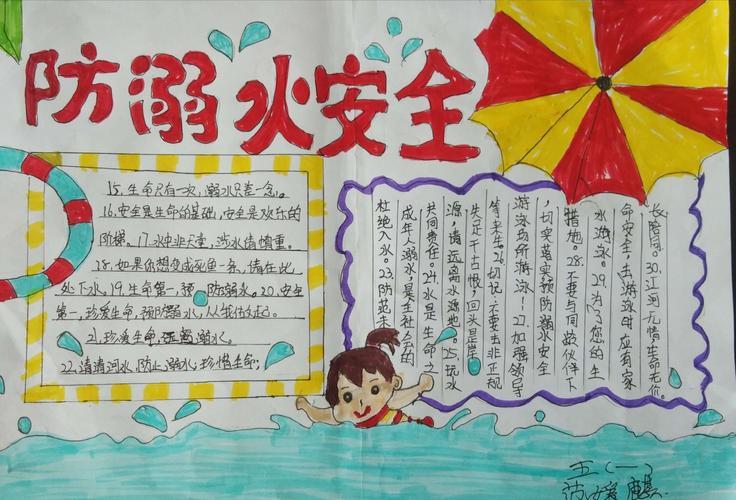 防溺水安全
15.生命只有一次,溺水只差一念。
16.安全是生命的基础,安全是欢乐的
阶梯。17.水中非天堂,涉水慎重。
18.如果你想变成死鱼一条,请在此
处下水。19.生命第一,预防溺水。20.安全
第一,珍爱生命,预防溺水,从我做起。
21.珍爱生命,远离溺水。
22.清清河水,防止溺水,珍惜生命;
杜绝入水。23.防范未
成年人溺水,是全社会的
共同责任。24.水是生命之
源,请远离水源地。25.玩水
失足千古恨,回头是岸
等来生。26.切记:不要去非正规
游泳场所游泳!27.加强领导
,切实落实预防溺水安全
措施。28.不要与同龄伙伴下
水游泳。29.为了您的生
命安全,去游泳时应有家
长陪同。30.江河无情生命无价。
五(一)